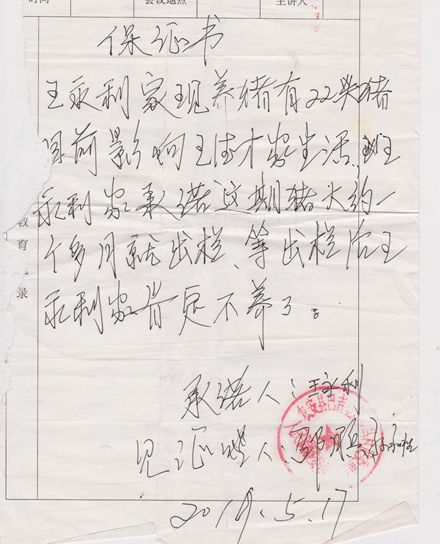 时间
会议地点
主讲人
保证书
王永利家现养猪有22头猪
目前影响王德才家生活、王
永利家承诺这期猪大约一
个多月就出栏、等出栏后王
永利家肯定不养了。
教育
录
承诺人:王永利
见证人:
2019.5.17